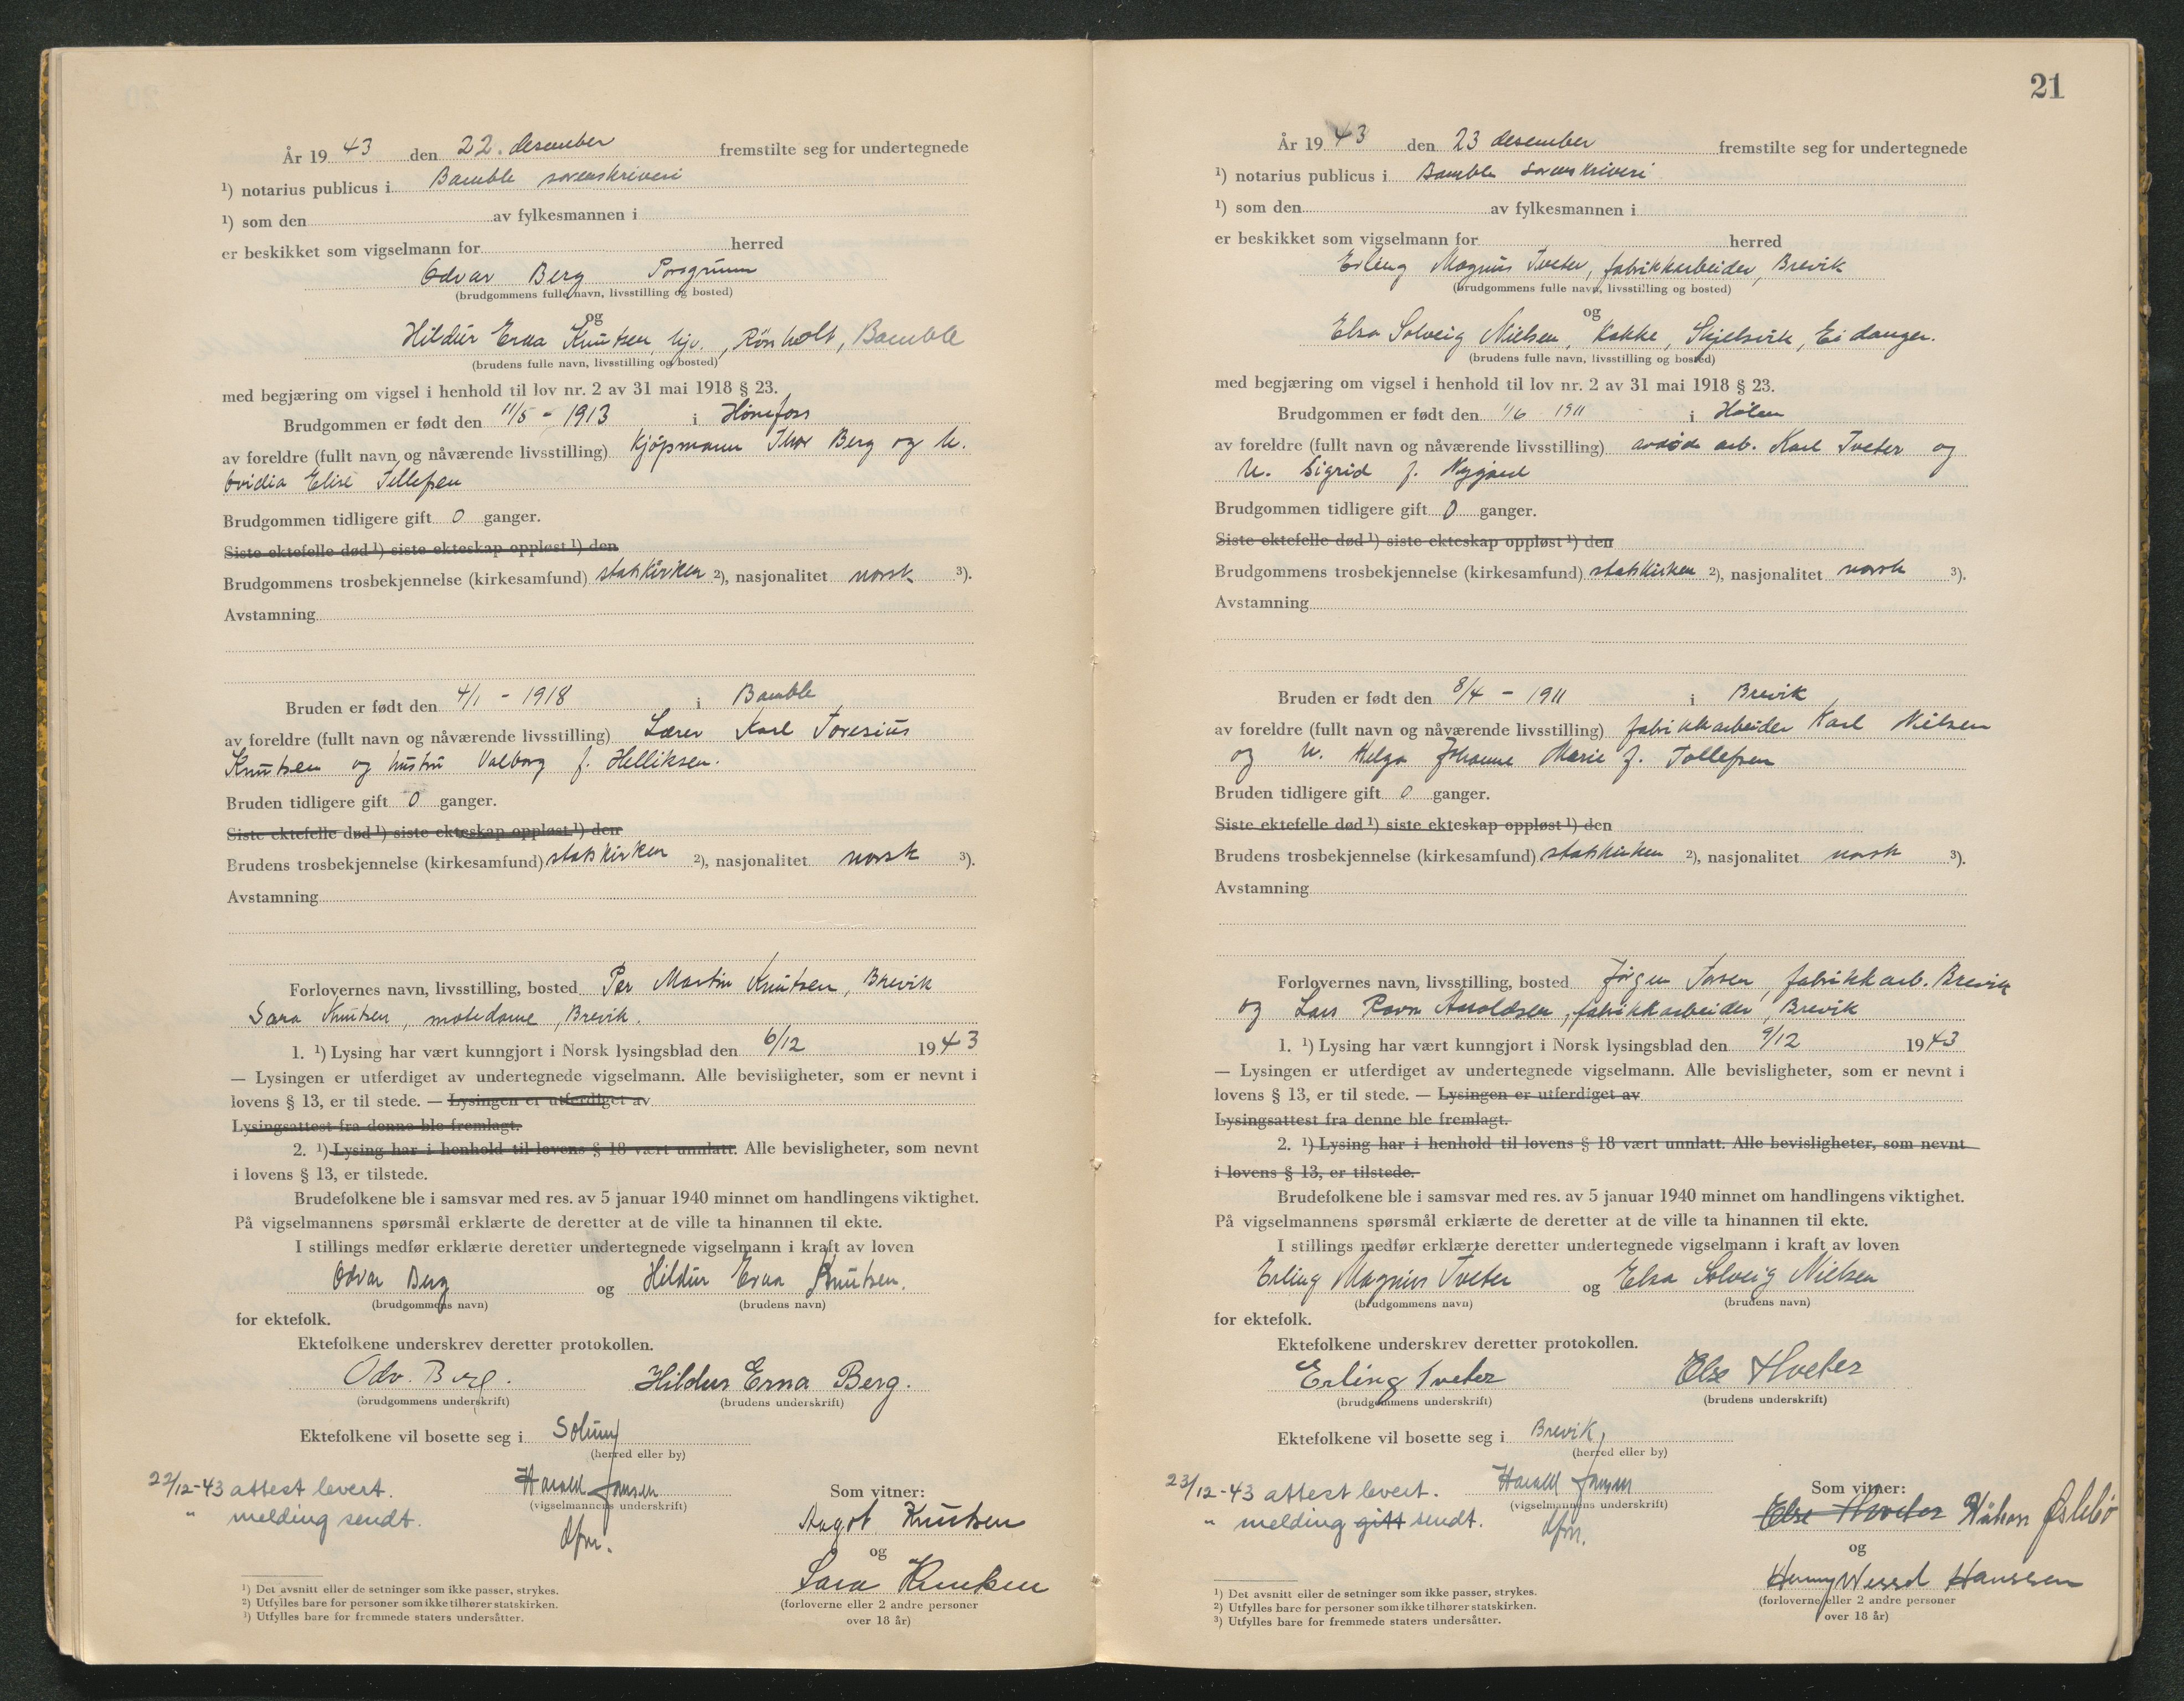 År 19 43 den 22. desember fremstilte seg for undertegnede
¹) notarius publicus i Bamble sorenskriveri
¹) som den av fylkesmannen i
er beskikket som vigselmann for herred
Odvar Berg Porsgrunn
(brudgommens fulle navn, livsstilling og bosted)
og
Hildur Erna Knutsen, hjv., Rönholt, Bamble
(brudens fulle navn, livsstilling og bosted)
med begjæring om vigsel i henhold til lov nr. 2 av 31 mai 1918 § 23.
Brudgommen er født den 11/5 - 1913 i Hönefoss
av foreldre (fullt navn og nåværende livsstilling) Kjöpmann Thor Berg og h.
Ovidia Elise Tellefsen
Brudgommen tidligere gift 0 ganger.
Siste ektefelle død ¹) siste ekteskap oppløst ¹) den
Brudgommens trosbekjennelse (kirkesamfund) statskirken ²), nasjonalitet norsk ³).
Avstamning
Bruden er født den 4/1 - 1918 i Bamble
av foreldre (fullt navn og nåværende livsstilling) Lærer Karl Toresius
Knutsen og hustru Valborg f. Helliksen.
Bruden tidligere gift 0 ganger.
Siste ektefelle død ¹) siste ekteskap oppløst ¹) den
Brudens trosbekjennelse (kirkesamfund) statskirken ²), nasjonalitet norsk ³).
Avstamning
Forlovernes navn, livsstilling, bosted Per Martin Knutsen, Brevik
Sara Knutsen, motedame, Brevik.
1. ¹) Lysing har vært kunngjort i Norsk lysingsblad den 6/12 19 43
— Lysingen er utferdiget av undertegnede vigselmann. Alle bevisligheter, som er nevnt i
lovens § 13, er til stede. — Lysingen er utferdiget av
Lysingsattest fra denne ble fremlagt.
2. ¹) Lysing har i henhold til lovens § 18 vært unnlatt. Alle bevisligheter, som nevnt
i lovens § 13, er tilstede.
Brudefolkene ble i samsvar med res. av 5 januar 1940 minnet om handlingens viktighet.
På vigselmannens spørsmål erklærte de deretter at de ville ta hinannen til ekte.
I stillings medfør erklærte deretter undertegnede vigselmann i kraft av loven
Odvar Berg og Hildur Erna Knutsen.
(brudgommens navn) (brudens navn)
for ektefolk.
Ektefolkene underskrev deretter protokollen.
Odv. Berg. Hildur Erna Berg.
(brudgommens underskrift) (brudens underskrift)
Ektefolkene vil bosette seg i Solum
(herred eller by)
22/12-43 attest levert. Harald Jansen Som vitner:
(vigselmannens underskrift)
" melding sendt. Aagot Knutsen
og
Sara Knutsen
(forloverne eller 2 andre personer
over 18 år)
¹) Det avsnitt eller de setninger som ikke passer, strykes.
²) Utfylles bare for personer som ikke tilhører statskirken.
³) Utfylles bare for fremmede staters undersåtter.
21
År 19 43 den 23 desember fremstilte seg for undertegnede
¹) notarius publicus i Bamble Sorenskriveri
¹) som den av fylkesmannen i
er beskikket som vigselmann for herred
Erling Magnus Tveter, fabrikkarbeider, Brevik
(brudgommens fulle navn, livsstilling og bosted)
og
Elsa Solveig Nielsen, Kokke, Skjelsvik, Eidanger.
(brudens fulle navn, livsstilling og bosted)
med begjæring om vigsel i henhold til lov nr. 2 av 31 mai 1918 § 23.
Brudgommen er født den 1/6 1911 i Hölen
av foreldre (fullt navn og nåværende livsstilling) avdöde arb. Karl Tveter og
h. Sigrid f. Nygård
Brudgommen tidligere gift 0 ganger.
Siste ektefelle død ¹) siste ekteskap oppløst ¹) den
Brudgommens trosbekjennelse (kirkesamfund) statskirken ²), nasjonalitet norsk ³).
Avstamning
Bruden er født den 8/4 - 1911 i Brevik
av foreldre (fullt navn og nåværende livsstilling) fabrikkarbeider Karl Nielsen
og h. Helga Johanne Marie f. Tollefsen
Bruden tidligere gift 0 ganger.
Siste ektefelle død ¹) siste ekteskap oppløst ¹) den
Brudens trosbekjennelse (kirkesamfund) statskirken ²), nasjonalitet norsk ³).
Avstamning
Forlovernes navn, livsstilling, bosted Jörgen fabrikkarb. Brevik
og Lars Ravn Aaroldsen, fabrikkarbeider, Brevik
1. ¹) Lysing har vært kunngjort i Norsk lysingsblad den 9/12 19 43
— Lysingen er utferdiget av undertegnede vigselmann. Alle bevisligheter, som er nevnt i
lovens § 13, er til stede. — Lysingen er utferdiget av
Lysingsattest fra denne ble fremlagt.
2. ¹) Lysing har i henhold til lovens § 18 vært unnlatt. Alle bevisligheter, som nevnt
i lovens § 13, er tilstede.
Brudefolkene ble i samsvar med res. av 5 januar 1940 minnet om handlingens viktighet.
På vigselmannens spørsmål erklærte de deretter at de ville ta hinannen til ekte.
I stillings medfør erklærte deretter undertegnede vigselmann i kraft av loven
Erling Magnus Tveter og Elsa Solveig Nielsen
(brudgommens navn) (brudens navn)
for ektefolk.
Ektefolkene underskrev deretter protokollen.
Erling Tveter Else Thveter
(brudgommens underskrift) (brudens underskrift)
Ektefolkene vil bosette seg i Brevik,
(herred eller by)
23/12-43 attest levert. Harald Jansen Som vitner:
(vigselmannens underskrift)
" melding gitt sendt. Else Thveter Håkon
og
Henny Wessel Hanssen
(forloverne eller 2 andre personer
over 18 år)
¹) Det avsnitt eller de setninger som ikke passer, strykes.
²) Utfylles bare for personer som ikke tilhører statskirken.
³) Utfylles bare for fremmede staters undersåtter.